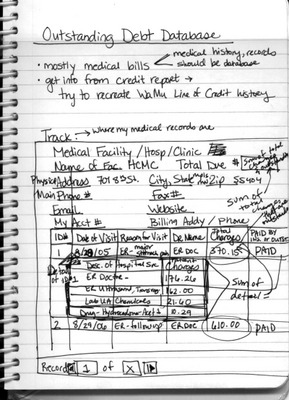 Outstanding Debt Database
medical history, records
should be database
• mostly medical bills
• get info from credit report →
try to recreate WaMu Line of Credit history
Track → where my medical records are
Medical Facility / Hosp / Clinic
Name of Fac. HCMC Total Due #
Physical Address 701 8th St. City, State Zip 55404
Main Phone # Fax #
Email Website
My Acct # Billing Addy / Phone
sum of
ID# Date of Visit Reason for Visit Dr. Name Total Charges PAID BY
1 8/28/05 ER - major ER DOC 370.15 PAID
Desc. of Hospital Svc Charges
ER Doctor - 176.26
ER Ultrasound, 162.00
Lab UA Chemicals 21.60
Drug - Hydrocodone 10.29
Sum of
detail =
2 8/29/06 ER - followup ER DOC 610.00 PAID
Record 1 of X